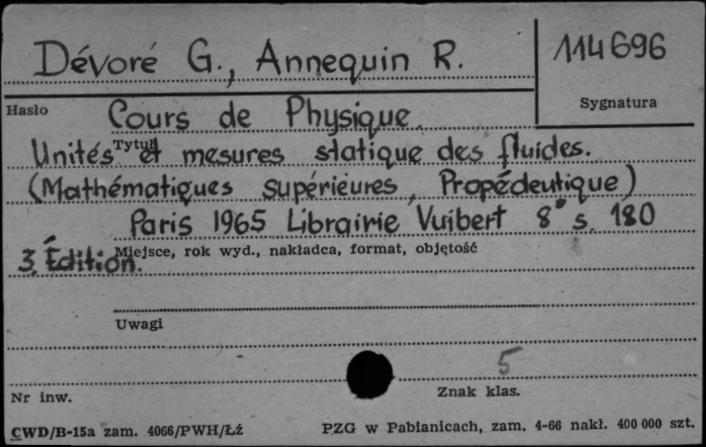 Dévoré G., Annequin R.
114696
Hasło
Sygnatura
Cours de Physique.
Tytuł
Unités et mesures statique des fluides.
(Mathématiques supérieures, Propédeutique)
Paris 1965 Librairie Vuibert 8° s. 180
Miejsce, rok wyd., nakładca, format, objętość
3. Édition.
Uwagi
5
Nr inw.
Znak klas.
CWD/B-15a zam. 4066/PWH/Łź
PZG w Pabianicach, zam. 4-66 nakł. 400 000 szt.